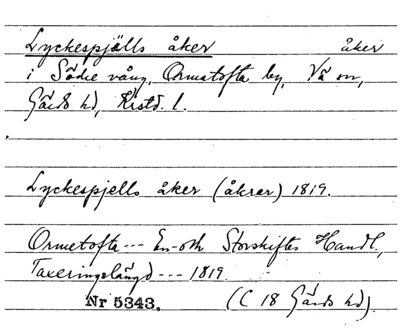 Lyckespjälls åker åker
i Södre vång, Ormatofta by, Vä sn,
Gärds hd, Kristd. l.
Lyckespjells åker (åkrar) 1819.
Ormetofta --- En- och Storskiftes Handl.,
Taxeringslängd --- 1819
Nr 5343. (C 18 Gärds hd).